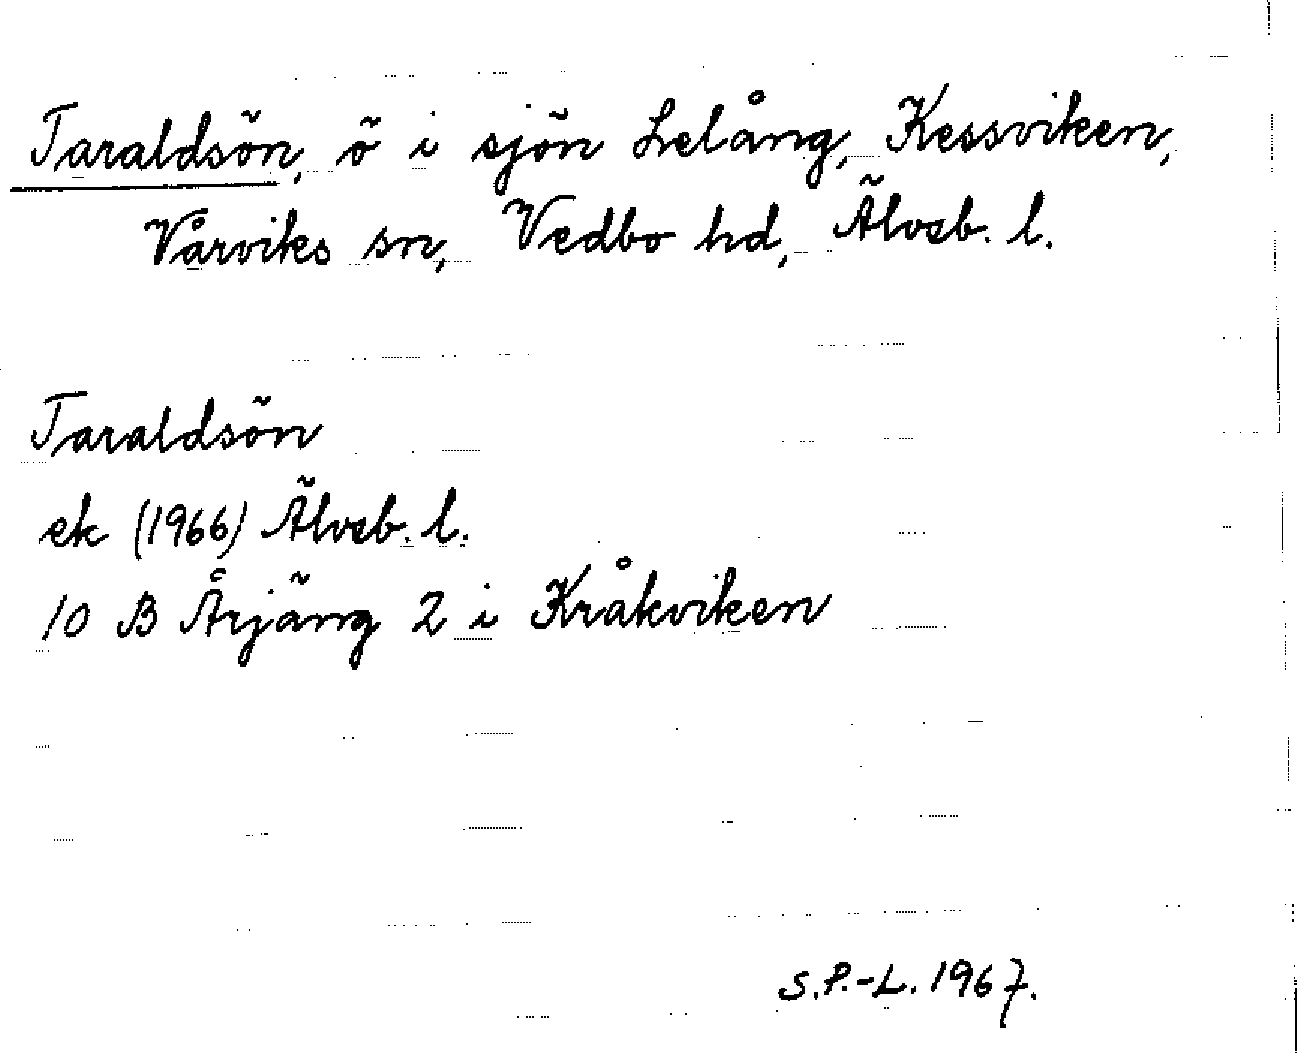 Taraldsön, ö i sjön Lelång, Kessviken,
Vårviks sn, Vedbo hd, Älvsb. l.
Taraldsön
ek (1966) Älvsb. l.
10 B Årjäng 2 i Kråkviken
S.P.-L. 1967.